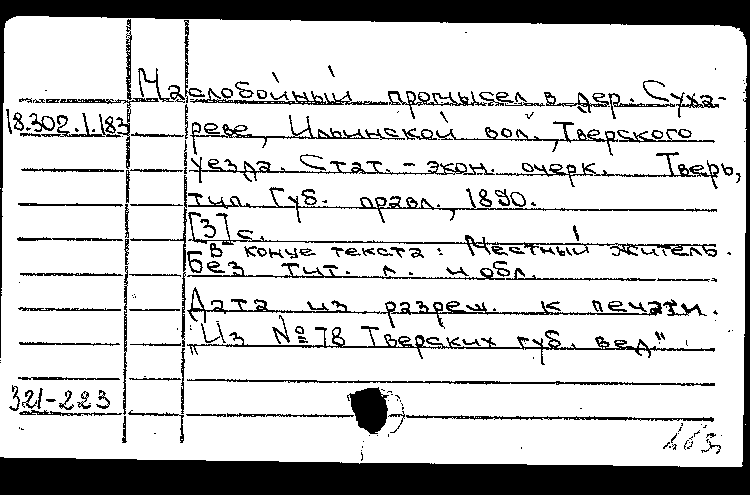 Маслобойный промысел в дер. Суха-
18.302.1.183 реве, Ильинской вол., Тверского
уезда. Стат.-экон. очерк. Тверь,
тип. Губ. правл., 1890.
[3] с.
В конце текста: Местный житель.
Без тит. л. и обл.
Дата из разреш. к печати.
"Из № 78 Тверских губ. вед."
321-223